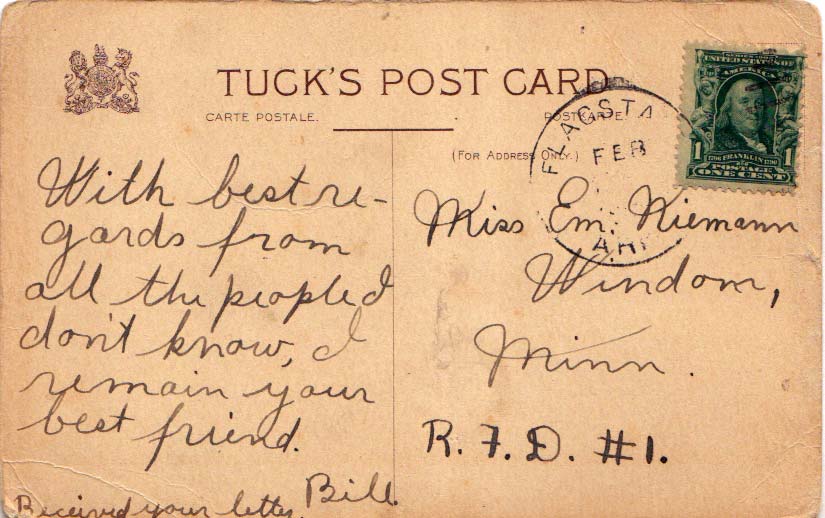 TUCK'S POST CARD
CARTE POSTALE.
POSTKARTE
(FOR ADDRESS ONLY.)
SERIES 1902
UNITED STATES OF
AMERICA
1 1706 FRANKLIN 1790 1
POSTAGE
ONE CENT
FLAGSTA
FEB
ARI
With best re-
gards from
all the people I
don't know, I
remain your
best friend.
Bill.
Received your letter.
Miss Em. Niemann
Windom,
Minn.
R.F.D. #1.